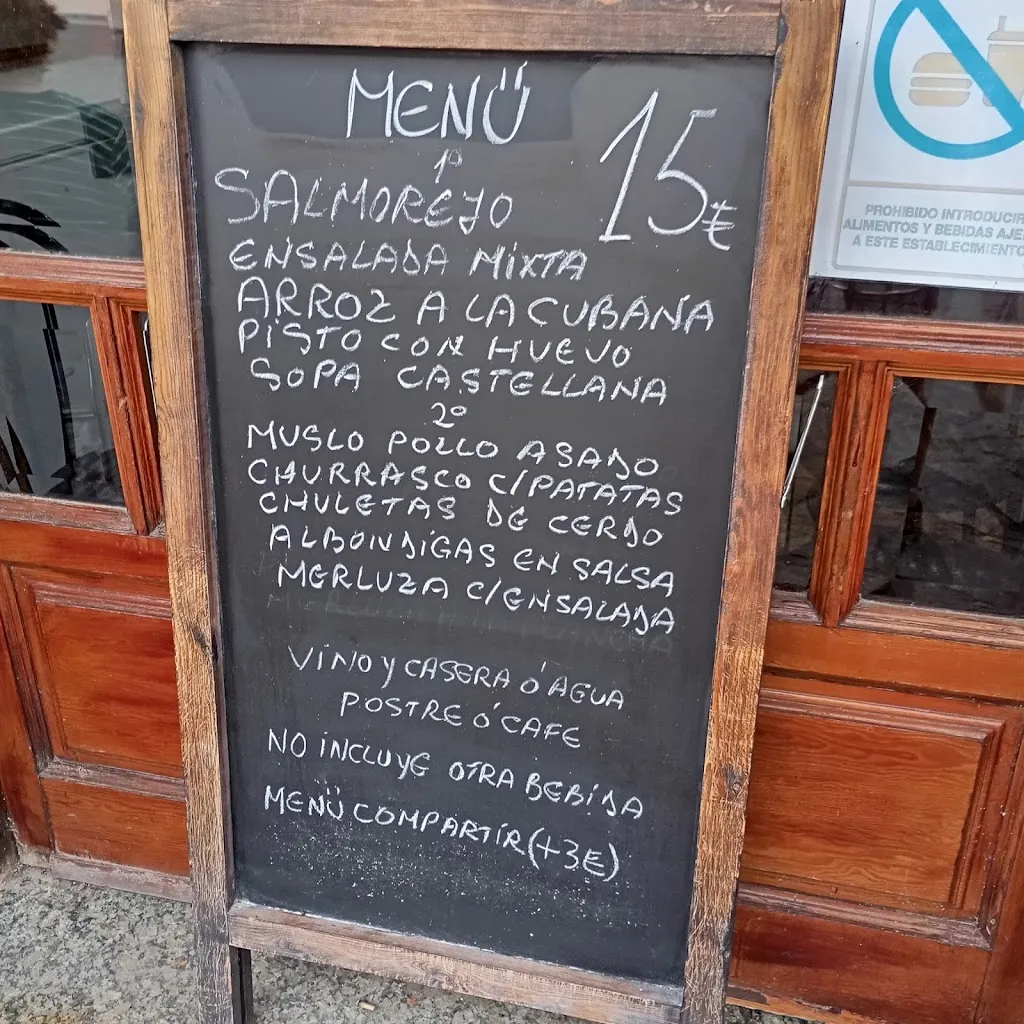 MENÜ
15€
1º
SALMOREJO
ENSALADA MIXTA
ARROZ A LA CUBANA
PISTO CON HUEVO
SOPA CASTELLANA
2º
MUSLO POLLO ASADO
CHURRASCO C/PATATAS
CHULETAS DE CERDO
ALBONDIGAS EN SALSA
MERLUZA C/ENSALADA
VINO Y CASERA Ó AGUA
POSTRE Ó CAFE
NO INCLUYE OTRA BEBIDA
MENÜ COMPARTIR (+3€)
PROHIBIDO INTRODUCIR
ALIMENTOS Y BEBIDAS
A ESTE ESTABLECIMIENTO